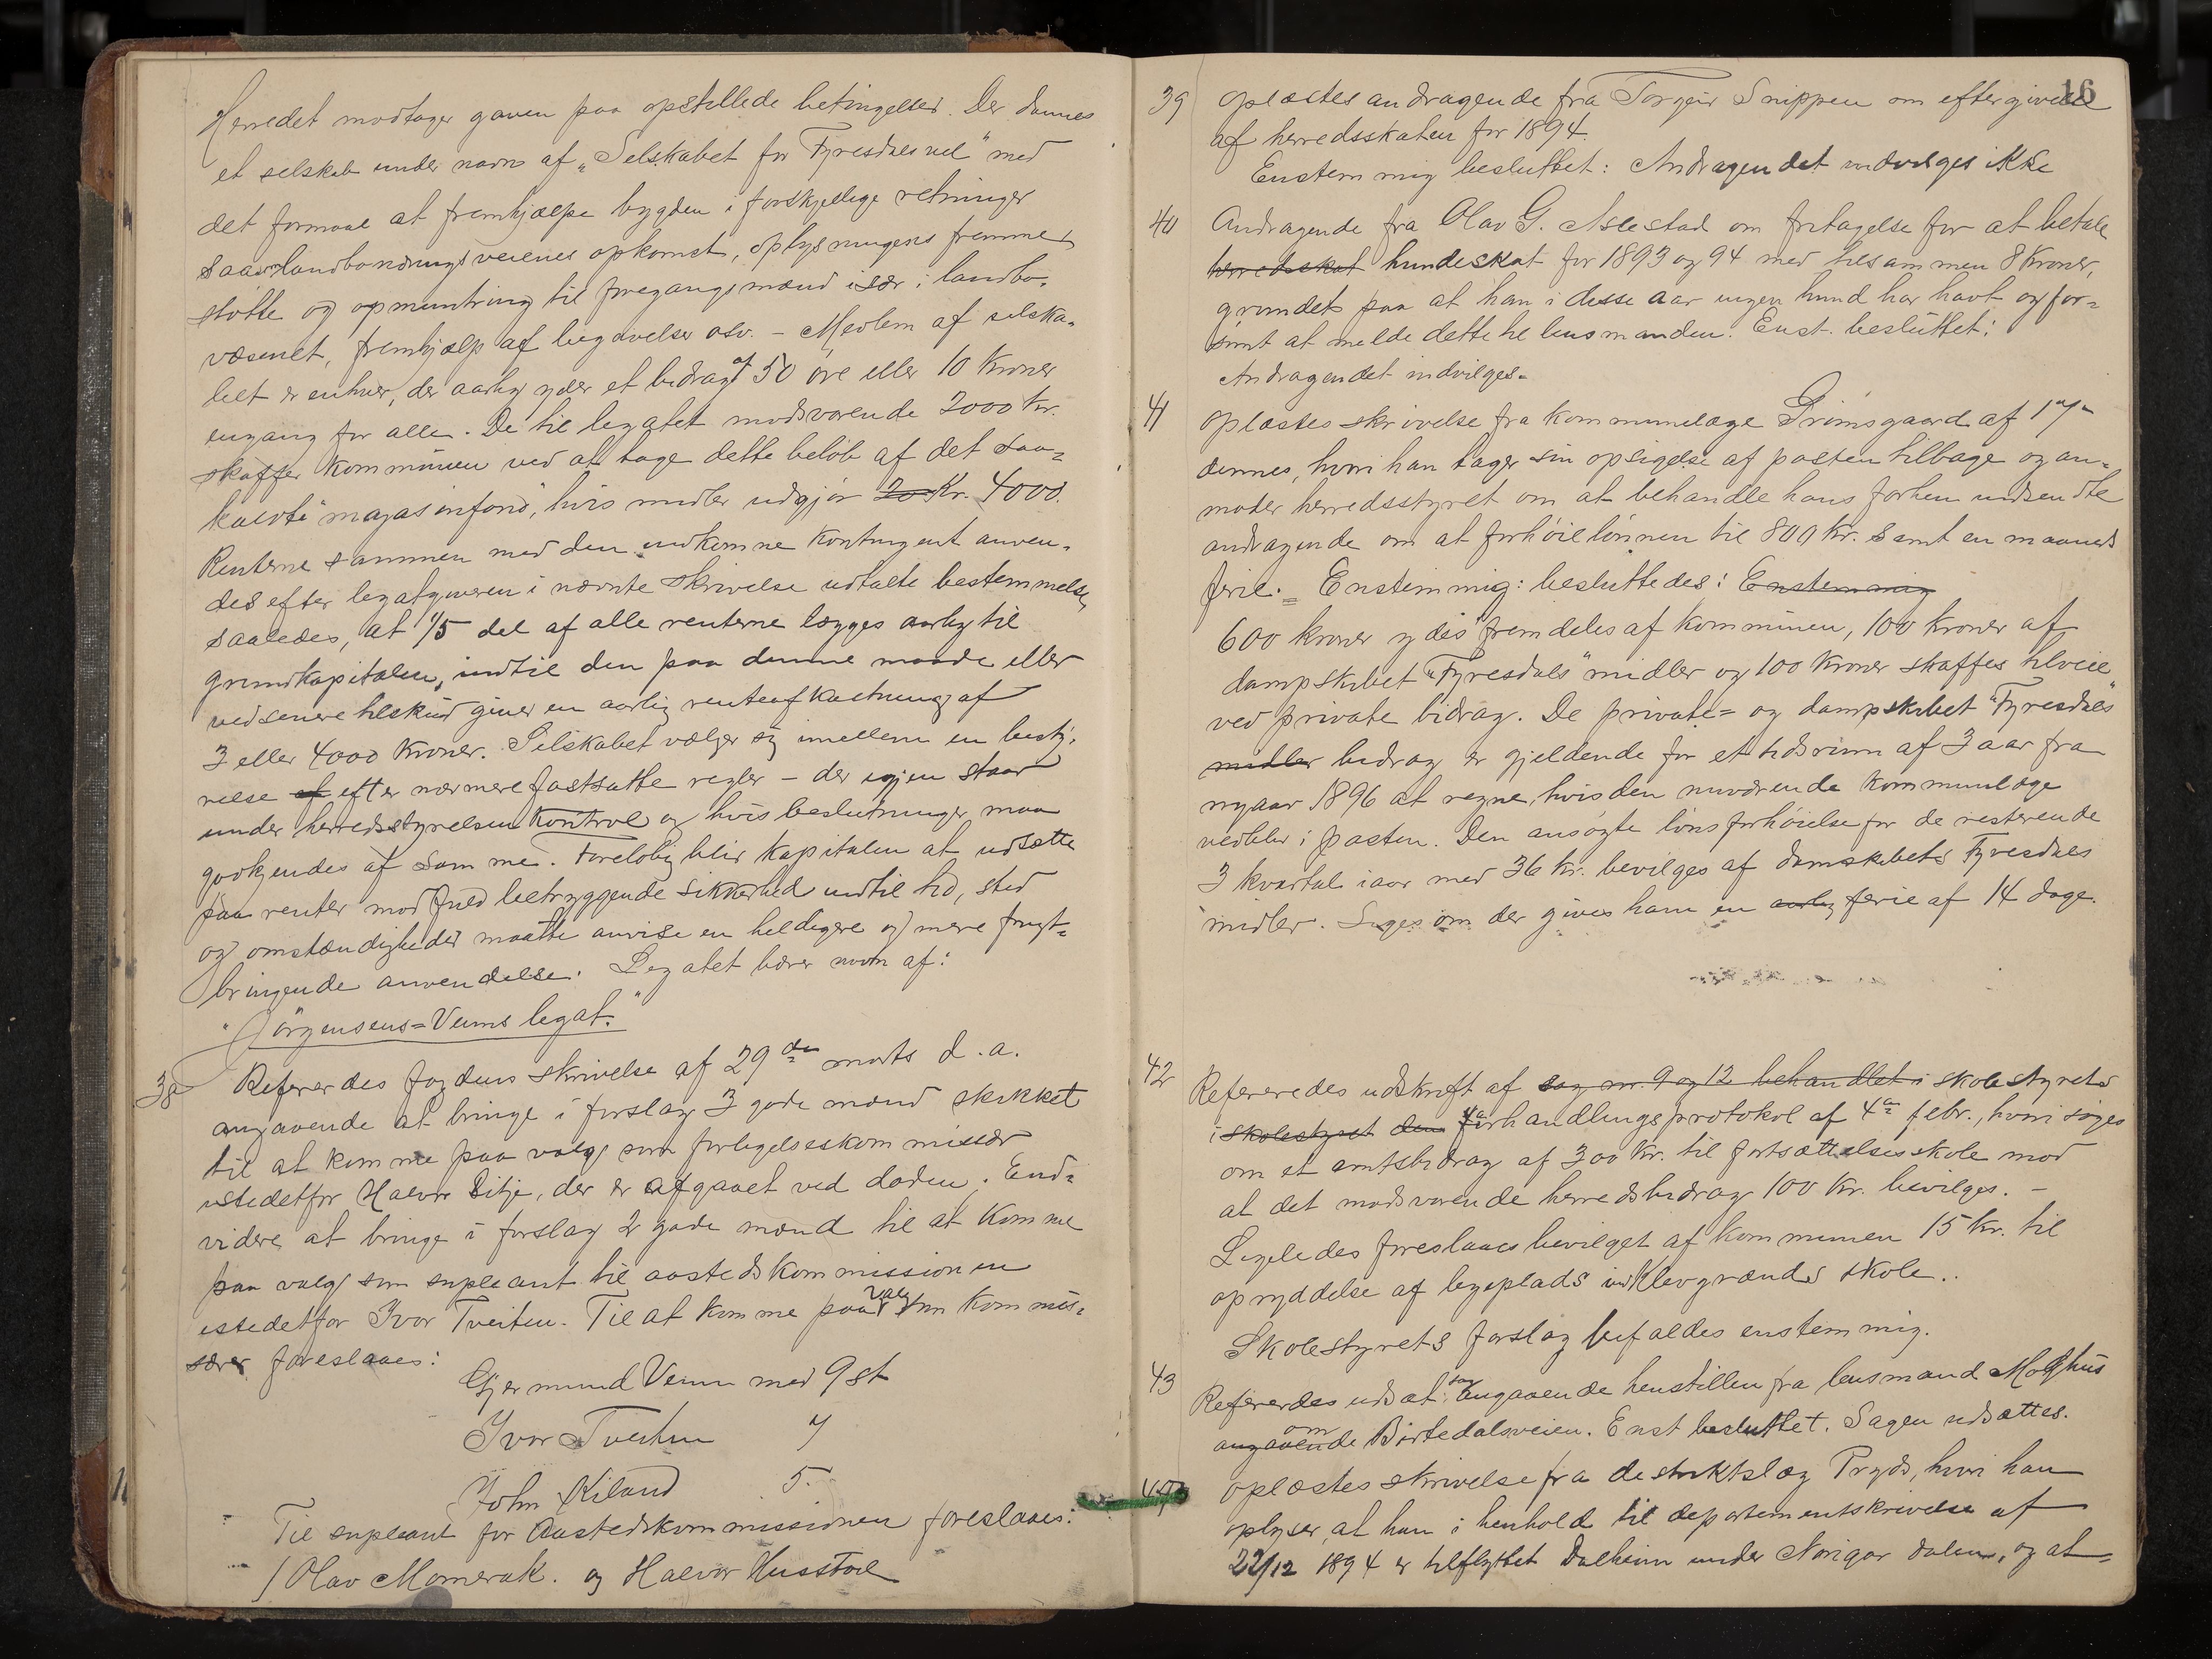 Herredet modtager gaven paa opstillede betingelser. Der dannes
et selskab under navn af „Selskabet for Fyresdals vel" med
det formaal at fremhjælpe bygden i forskjellige retninger
saasom landbonæringsveienes opkomst, oplysningens fremme,
støtte og opmuntring til foregangsmænd især i landbo-
væsenet, fremhjælp af begavelser osv. – Medlem af selska-
bet er enhver, der aarlig yder et bidrag af 50 øre eller 10 kroner
engang for alle. De til legatet modsvarende 2000 kr.
skaffer kommunen ved at tage dette beløb af det saa-
kaldte "magasinfond", hvis midler udgjør 20 Kr. 4000.
Renterne sammen med den indkomne kontingent anven-
des efter legatgiveren i nævnte skrivelse udtalte bestemmelse,
saaledes, at 1/5 del af alle renterne lægges aarlig til
grundkapitalen, indtil den paa denne maade eller
ved senere tilskud giver en aarlig renteafkastning af
3 eller 4000 kroner. Selskabet vælger sig imellem en besty-
relse af efter nærmere fastsatte regler – der igjen staar
under herredsstyrelsen kontrol og hvis beslutninger maa
godkjendes af samme. Foreløbig blir kapitalen at udsætte
paa renter mod fuld betryggende sikkerhed indtil tid, sted
og omstændigheder maatte anvise en heldigere og mere frugt-
bringende anvendelse. Legatet bærer navn af:
"Jørgensens=Veums legat."
38 Refererdes fogdens skrivelse af 29de marts d.a.
angaaende at bringe i forslag 3 gode mænd skikket
til at komme paa valg som forligelseskommissær
istedetfor Halvor Sitje, der er afgaaet ved døden. End-
videre at bringe i forslag 2 gode mænd til at komme
paa valg som supleant til aastedskommissionen
istedetfor Ivor Tveiten. Til at komme paa valg som kommis-
særer foreslaaes:
Gjermund Veum med 9 st
Ivor Tveiten 7
John Kiland 5.
Til supleant for Aastedskommissionen foreslaaes:
Olav Momrak. og Halvor Husstøl
16
39 Oplæstes andragende fra Torgeir Snippen om eftergivelse
af herredsskatten for 1894.
Enstemmig besluttet: Andragendet indvilges ikke
40 Andragende fra Olav G. Aslestad om fritagelse for at betale
herredsskat hundeskat for 1893 og 94 med tilsammen 8 kroner,
grundet paa at han i disse aar ingen hund har havt og for-
sømt at melde dette til lensmanden. Enst. besluttet:
Andragendet indvilges.
41 Oplæstes skrivelse fra kommunelæge Grimsgaard af
dennes, hvori han tager sin opsigelse af posten tilbage og an-
moder herredsstyret om at behandle hans forhen indsendte
andragende om at forhøie lønnen til 800 kr. samt en maaneds
ferie. = Enstemmig: besluttedes: Enstemmig
600 kroner ydes fremdeles af kommunen, 100 kroner af
dampskibet "Fyresdals" midler og 100 kroner skaffes tilveie
ved private bidrag. De private= og dampskibet "Fyresdals"
midler bidrag er gjeldende for et tidsrum af 3 aar fra
nyaar 1896 at regne, hvis den nuværende kommunelæge
vedblir i posten. Den ansøgte lønsforhøielse for de resterende
3 kvartal iaar med 36 kr. bevilges af damskibets Fyresdals
midler. Ligesom der gives ham en aarlig ferie af 14 dage.
42 Refereredes udskrift af sag nr. 9 og 12 behandlet i skolestyrets
i skolestyret den forhandlingsprotokol af 4de febr., hvori siges
om et amtsbidrag af 300 kr. til fortsættelsesskole mod
at det modsvarende herredsbidrag 100 kr. bevilges. –
Ligeledes foreslaaes bevilget af kommunen 15 kr. til
opryddelse af legeplads ved Klevgrænds skole..
Skolestyrets forslag bifaldes enstemmig.
43 Refererdes udsat sag angaaende henstillen fra lensmand Molghus
angaaende om Birtedalsveien. Enst besluttet. Sagen udsættes.
44 Oplæstes skrivelse fra destriktslæg Pryds, hvori han
oplyser, at han i henhold til departementskrivelse af
22/12 1894 er tilflyttet Dalheim under Norigar dalen, og at